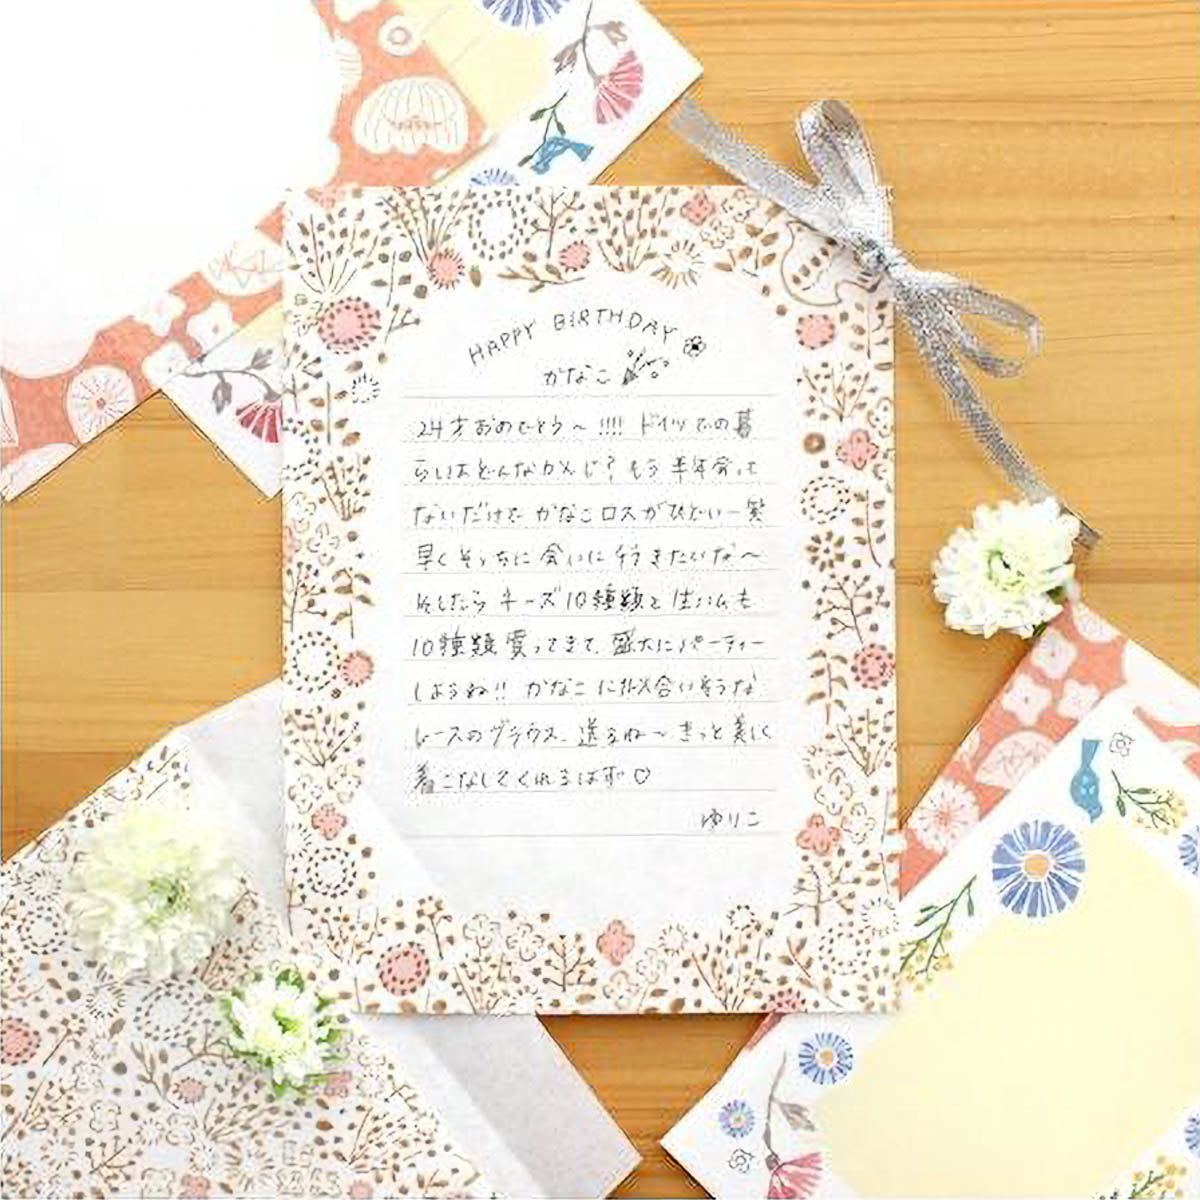 HAPPY BIRTHDAY
かなこ
24才おめでとう〜!!!! ドイツでの暮
らしはどんなかんじ?もう半年会って
ないだけで かなこロスがひどい 笑
早くそっちに会いに行きたいな〜
そしたら チーズ10種類と生ハムも
10種類買ってきて、盛大にパーティー
しようね!! かなこに似合いそうな
レースのブラウス、送るね〜きっと美しく
着こなしてくれるはず♡
ゆりこ